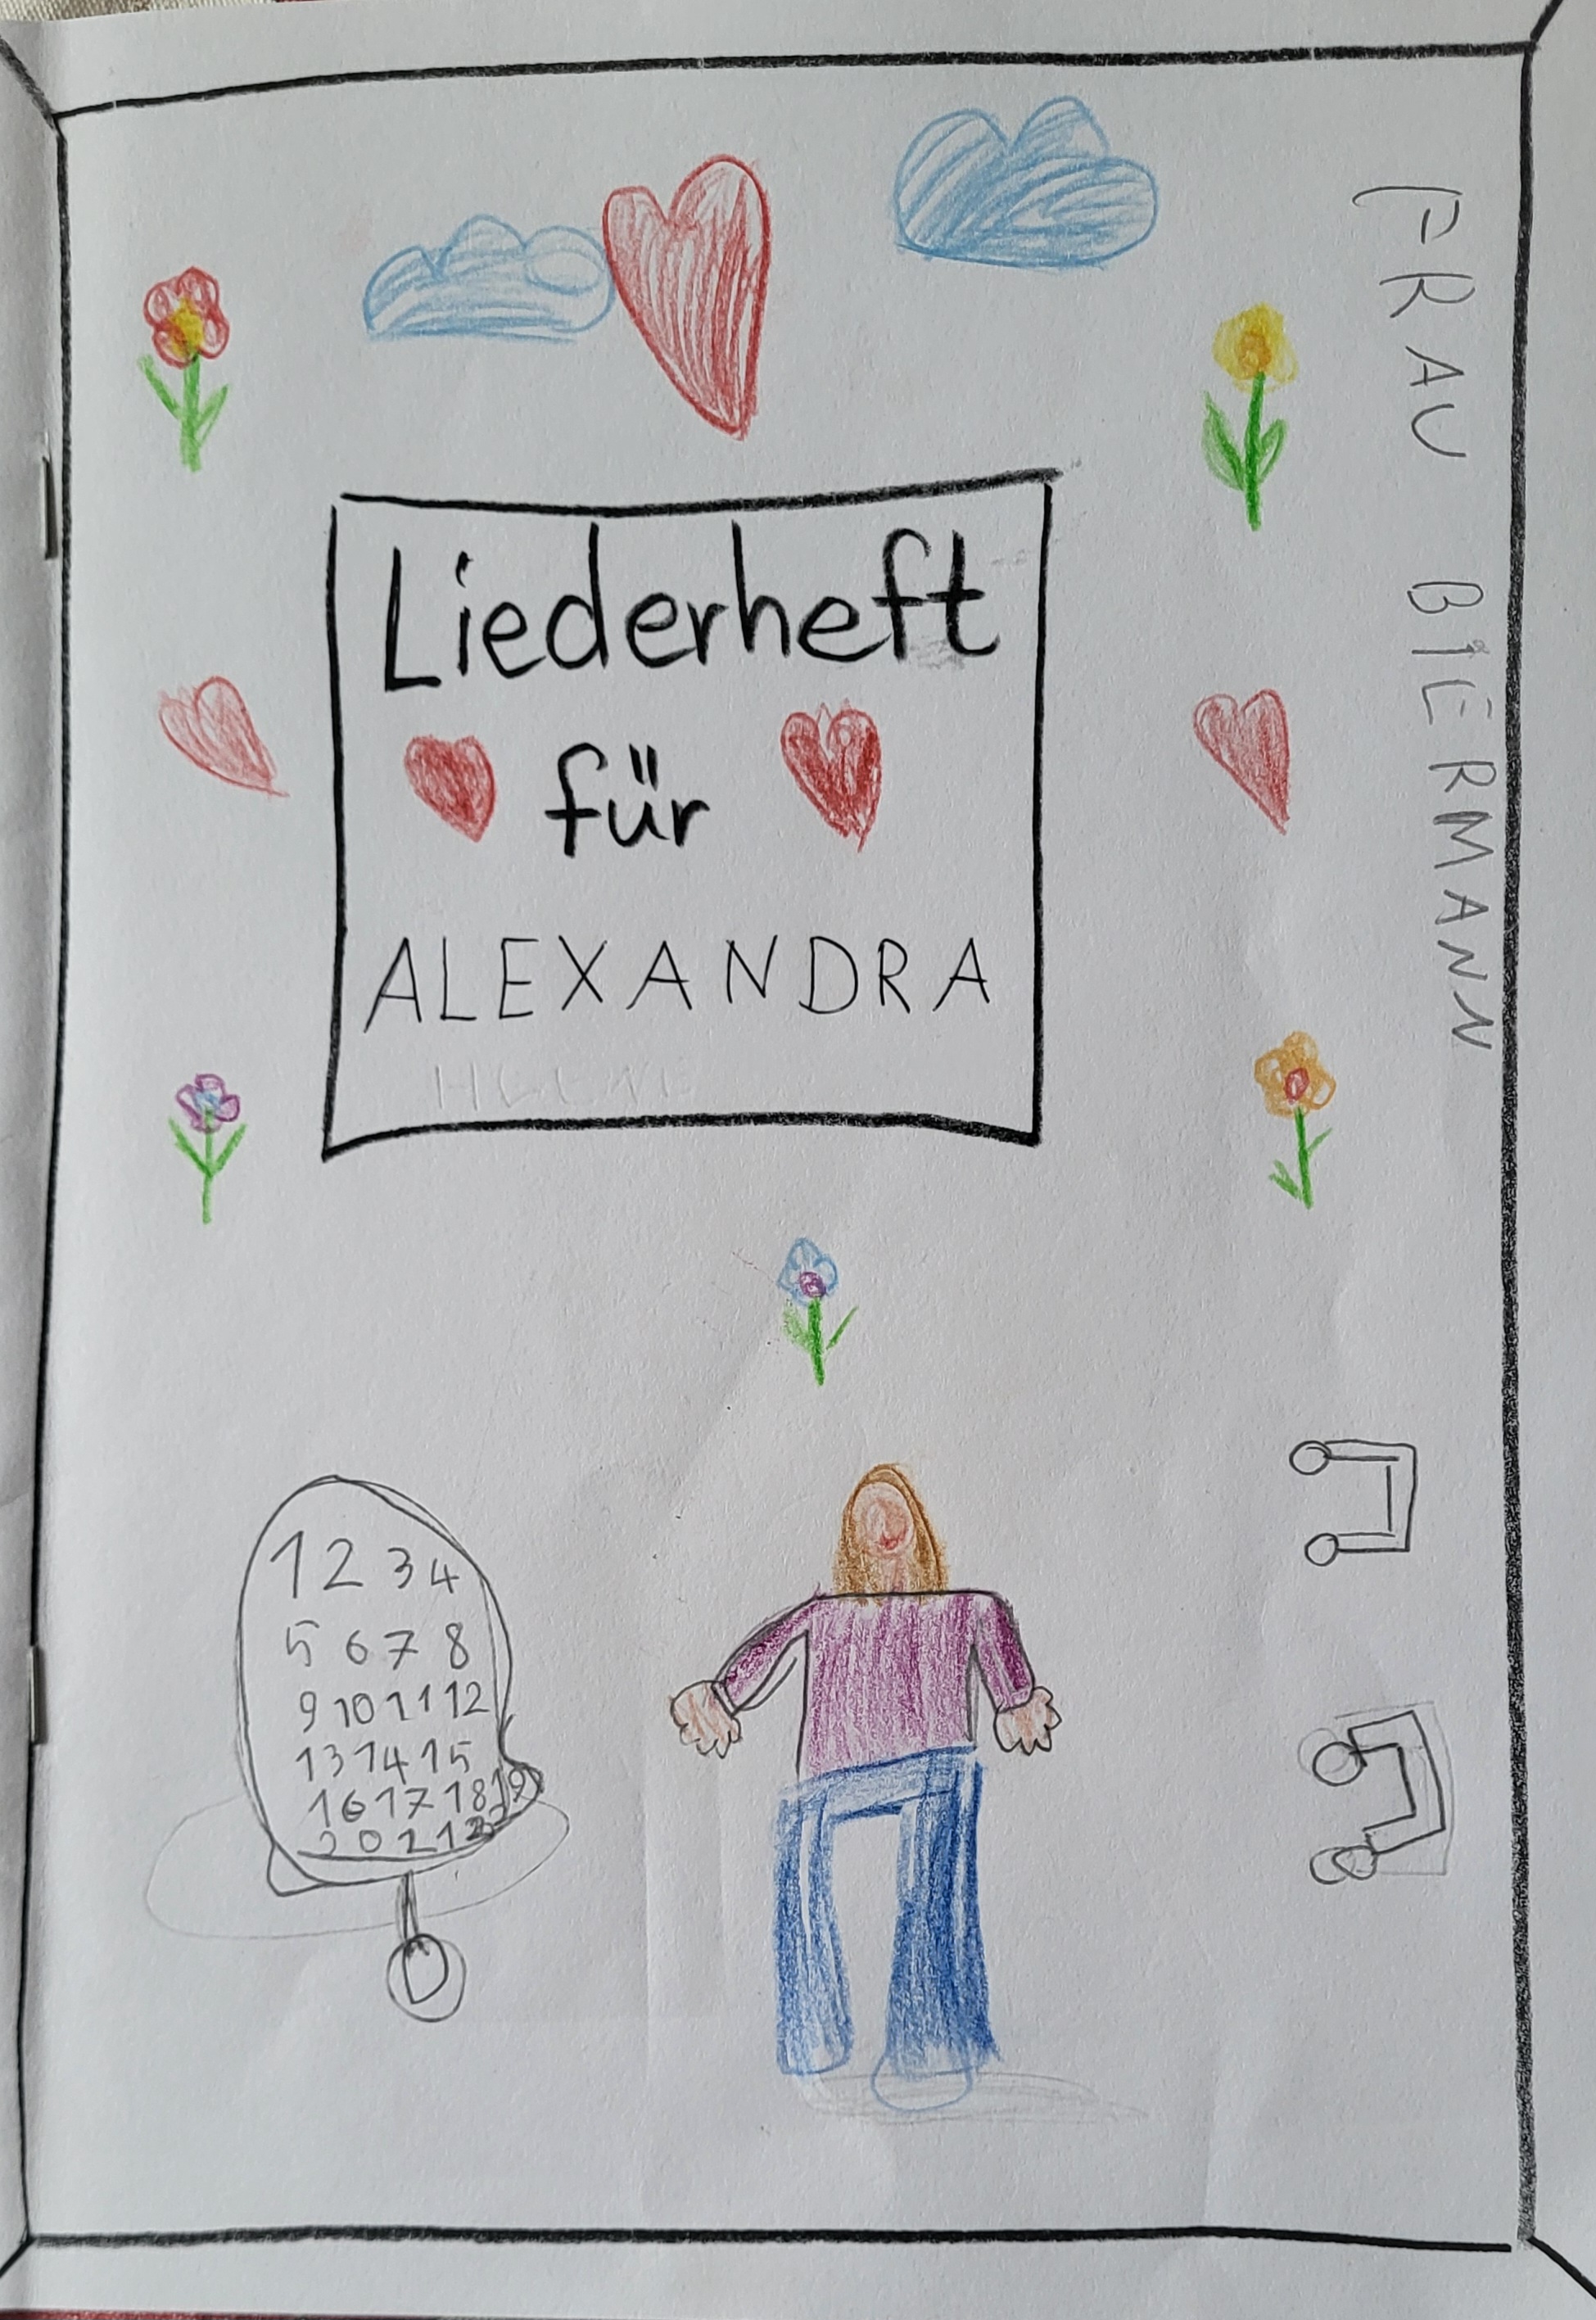 Liederheft
für
ALEXANDRA
FRAU BIERMANN
1 2 3 4
5 6 7 8
9 10 11 12
13 14 15
16 17 18 19
20 21